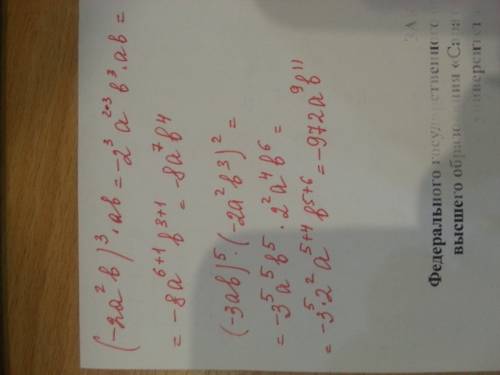 (-2a²b)³·ab = -2³a²·³b³·ab =
= -8a⁶⁺¹b³⁺¹ = -8a⁷b⁴
(-3ab)⁵·(-2a²b³)² =
= -3⁵a⁵b⁵·2²a⁴b⁶ =
= -3⁵·2²a⁵⁺⁴b⁵⁺⁶ = -972a⁹b¹¹
ЗА
Федерального государственного
высшего образо